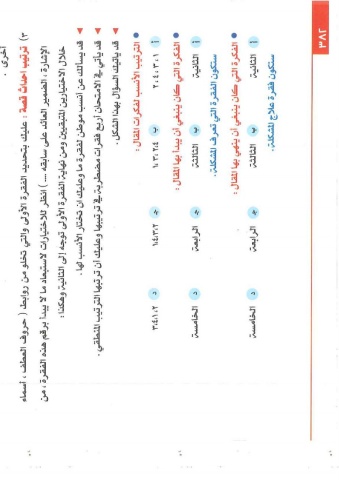 أخرى .
٣) ترتيب أحداث قصة : عليك بتحديد الفقرة الأولى والتي تخلو من روابط ( حروف العطف ، أسماء
الإشارة ، الضمير العائد على سابقه .... ) انظر للاختيارات لاستبعاد ما لا يبدأ برقم هذه الفقرة ، من
خلال الاختيارين المتبقيين ومن نهاية الفقرة الأولى توجه إلى الثانية وهكذا :
قد يسألك عن أنسب موطن لفقرة ما وعليك أن تختار الأنسب لها .
قد يأتي في الامتحان أربع فقرات مضطربة في ترتيبها وعليك أن ترتبها الترتيب المنطقي .
قد يأتيك السؤال بهذا الشكل .
الترتيب الأنسب لفكرات المقال :
أ ٢،٤،٣،١ ب ١،٣،٢،٤ ج ١،٤،٣،٢ د ٣،٤،١،٢
الفكرة التي كان ينبغي أن يبدأ بها المقال :
ستكون الفقرة التي تعرف المشكلة .
أ الثانية ب الثالثة ج الرابعة د الخامسة
الفكرة التي كان ينبغي أن ينهي بها المقال :
ستكون فقرة علاج المشكلة .
أ الثانية ب الثالثة ج الرابعة د الخامسة
٣٨٢